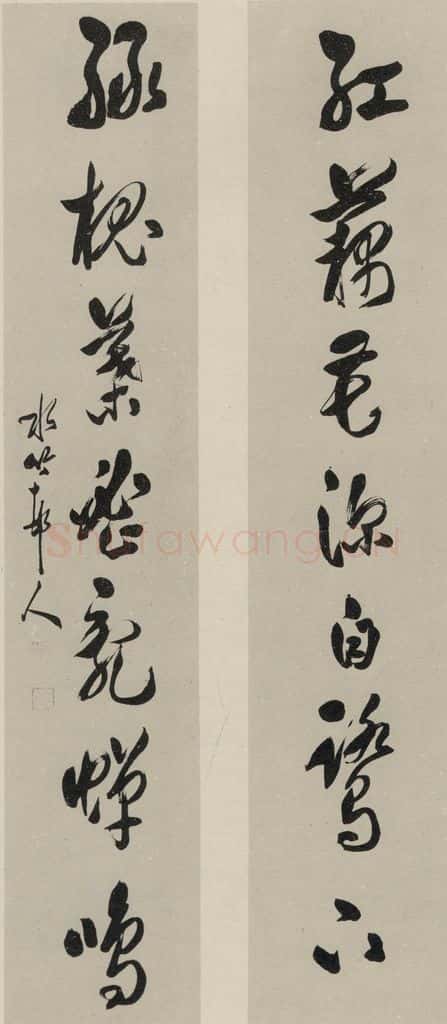 紅藕花深白鷺下
綠槐葉密亂蟬鳴
水竹邨人
Shufawang.CN